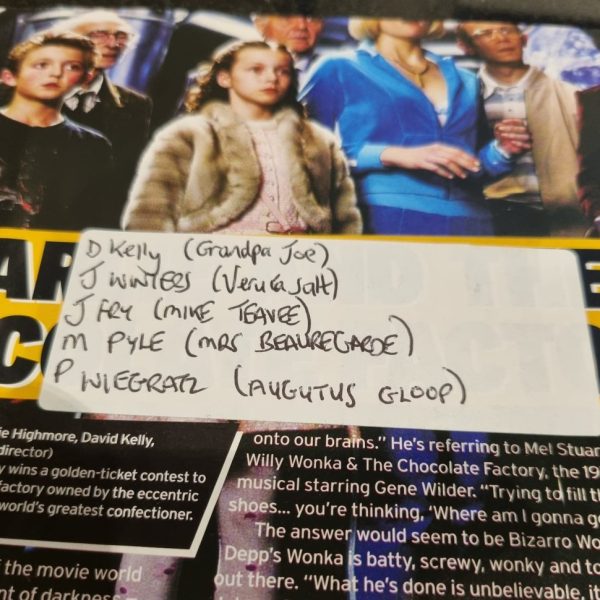 AR
D THE
CO
D Kelly (Grandpa Joe)
J WINTERS (Veruca Salt)
J FRY (MIKE TEAVEE)
M PYLE (MRS BEAUREGARDE)
P WIEGRATZ (AUGUTUS GLOOP)
ie Highmore, David Kelly,
director)
y wins a golden-ticket contest to
factory owned by the eccentric
world's greatest confectioner.
f the movie world
nt of darkness
onto our brains." He's referring to Mel Stuar
Willy Wonka & The Chocolate Factory, the 19
musical starring Gene Wilder. "Trying to fill th
shoes... you're thinking, 'Where am I gonna g
The answer would seem to be Bizarro Wo
Depp's Wonka is batty, screwy, wonky and to
out there. "What he's done is unbelievable, it